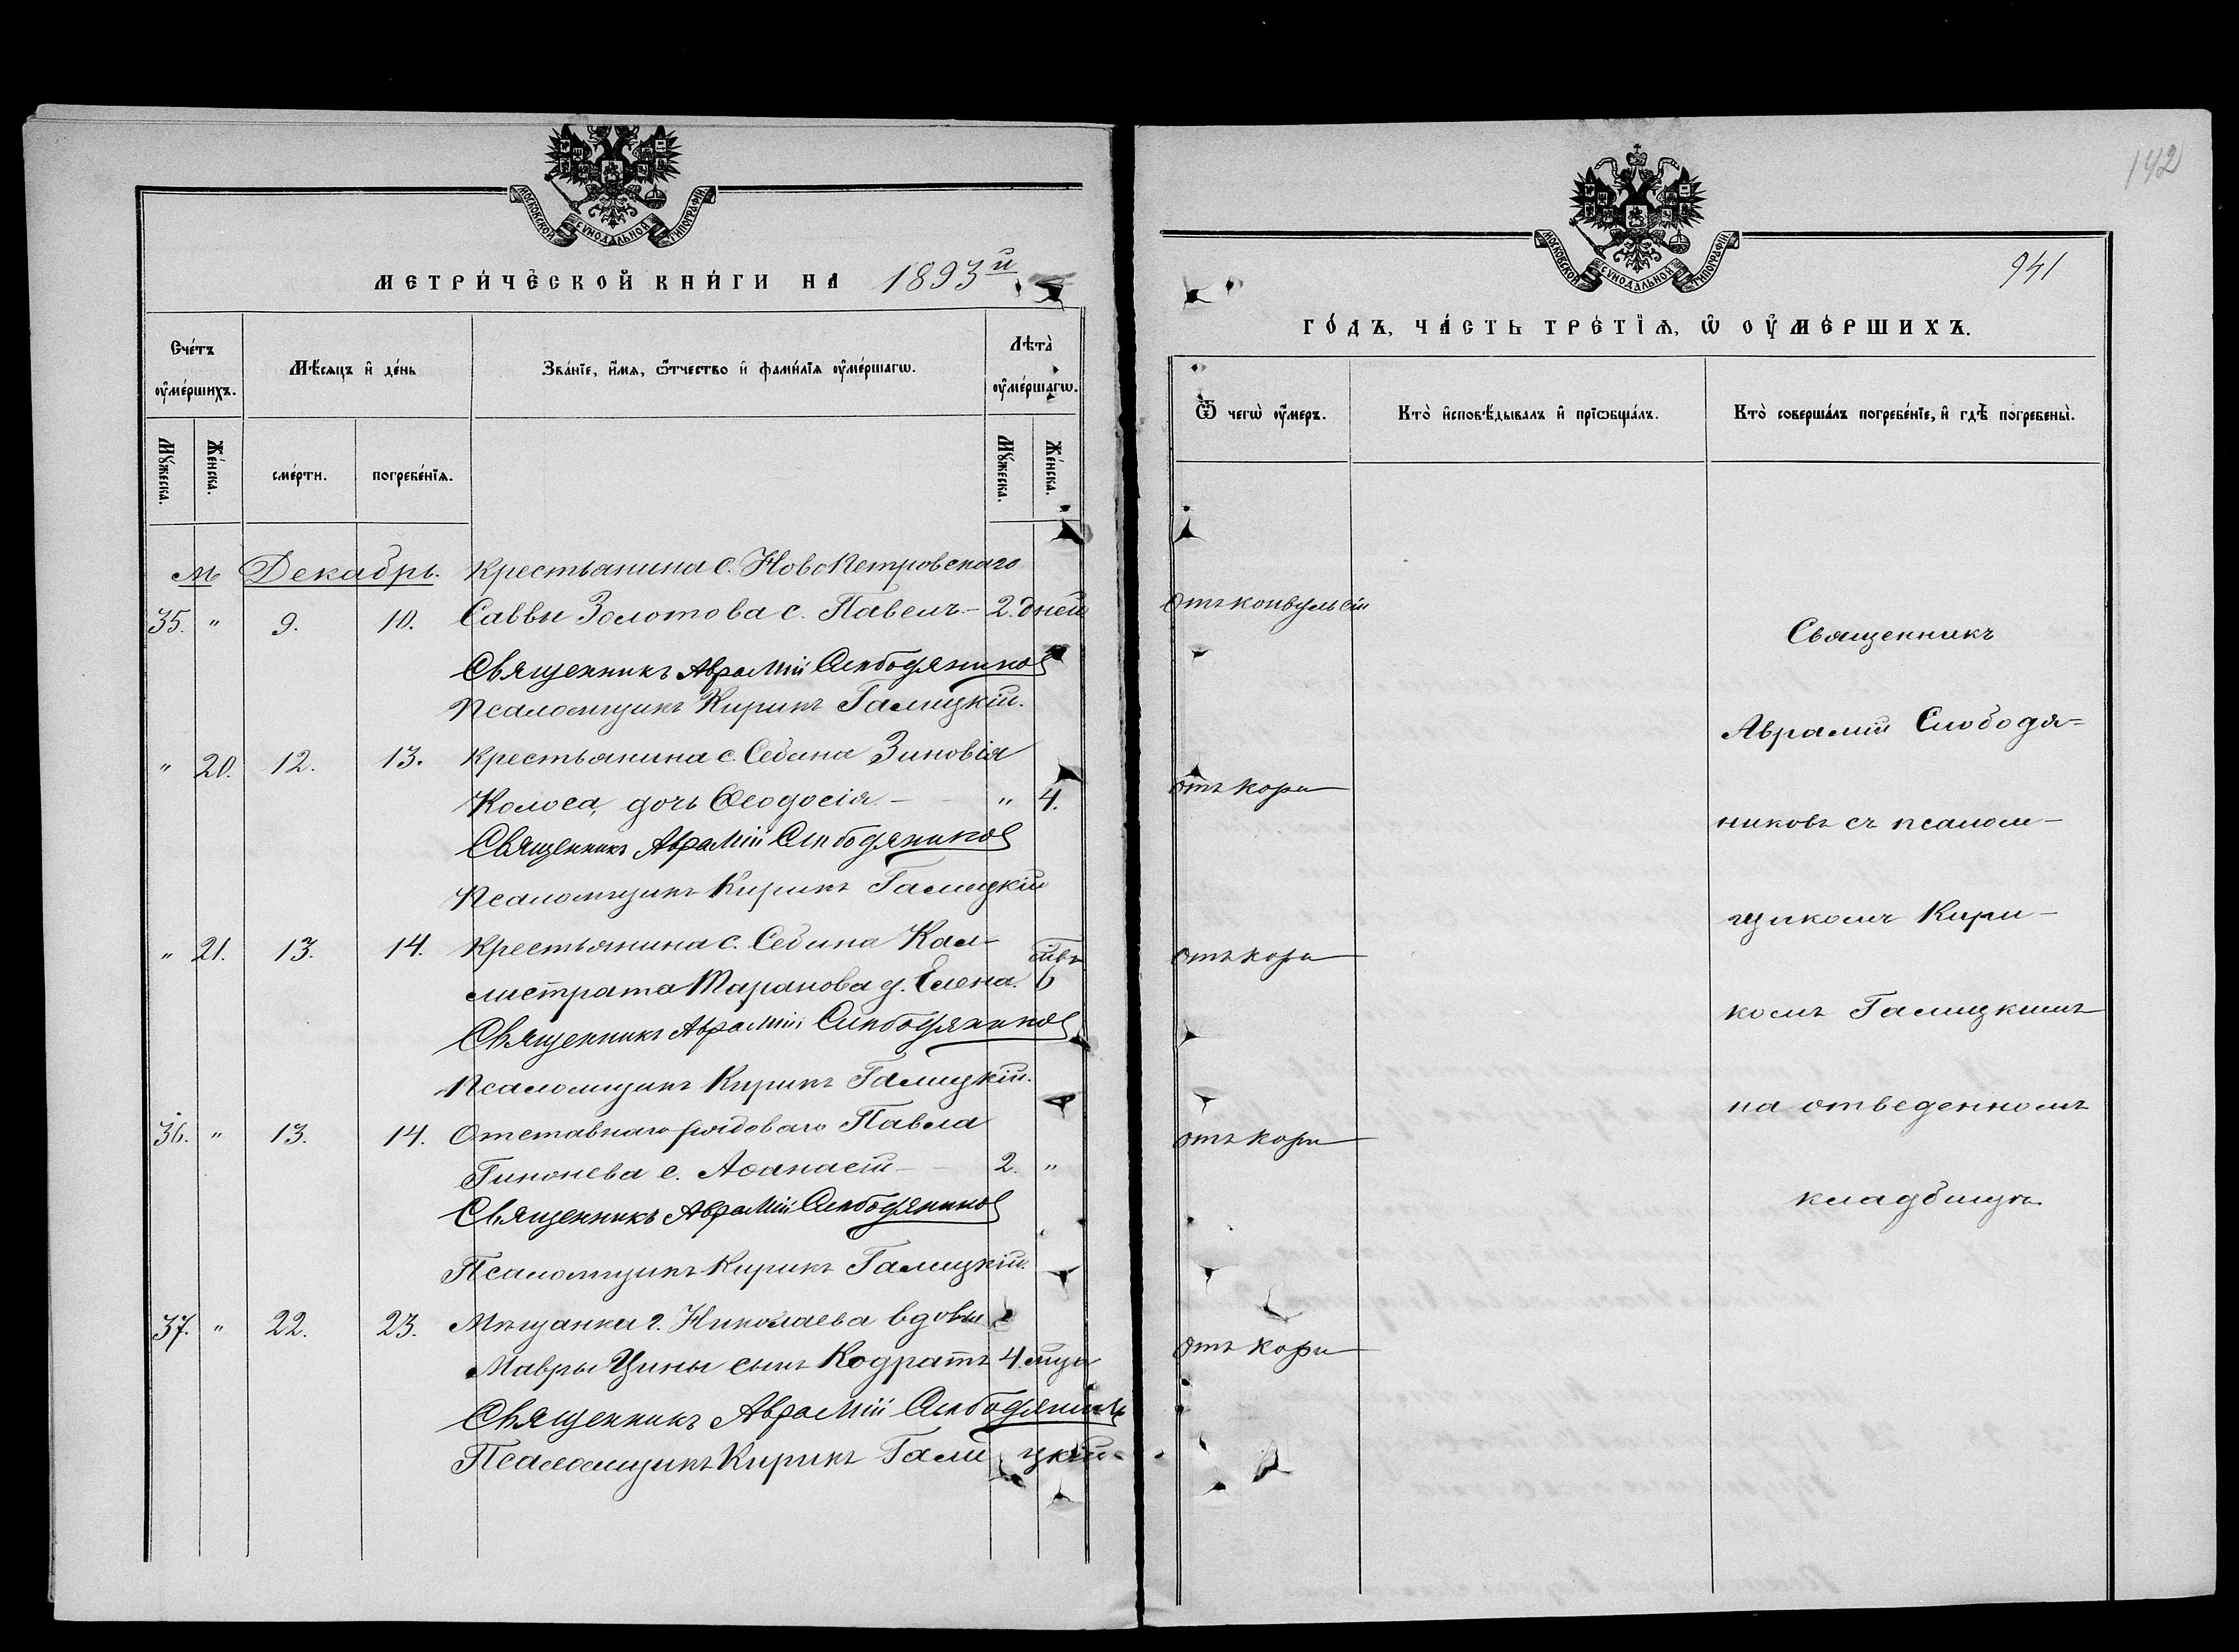 МОСКОВСКОЙ СѴНОДАЛЬНОЙ ТИПОГРАФІИ
МЕТРИ́ЧЕСКОЙ КНИ́ГИ НА 1893й
Сче́тъ ᲂу҆ме́ршихъ.
Мѣ́сѧцъ и҆ де́нь
Зва́нїе, и҆́мѧ, ѻ҆́тчество и҆ фами́лїѧ ᲂу҆ме́ршагѡ.
Лѣта̀ ᲂу҆ме́ршагѡ.
Мꙋ́жеска.
Же́нска.
сме́рти.
погребе́нїѧ.
Мꙋ́жеска.
Же́нска.
м Декабрь. Крестьянина с. Новопетровскаго
35. " 9. 10. Саввы Золотова с. Павелъ - 2. дней
Священникъ Аврамій Слободяниковъ
Псаломщикъ Кирикъ Галицкій.
" 20. 12. 13. Крестьянина с. Себина Зиновія
Колоса, дочь Ѳеодосія - " 4.
Священникъ Аврамій Слободяниковъ
Псаломщикъ Кирикъ Галицкій
" 21. 13. 14. Крестьянина с. Себина Кал-
листрата Таранова д. Елена. 6
Священникъ Аврамій Слободяниковъ
Псаломщикъ Кирикъ Галицкій.
36. " 13. 14. Отставнаго рядоваго Павла
с. Аѳанасій - 2. "
Священникъ Аврамій Слободяниковъ
Псаломщикъ Кирикъ Галицкій.
37. " 22. 23. Мѣщанки г. Николаева вдовы
Мавры Цины сынъ Кодратъ 4. мца
Священникъ Аврамій Слободяниковъ
Псаломщикъ Кирикъ Галицкій.
142
МОСКОВСКОЙ СѴНОДАЛЬНОЙ ТИПОГРАФІИ
941
ГО́ДЪ, ЧА́СТЬ ТРЕ́ТЇѦ, Ѡ҆ ОУ҆МЕ́РШИХЪ.
Ѿ чегѡ̀ ᲂу҆́меръ.
Кто̀ и҆сповѣ́дывалъ и҆ прїѡбща́лъ.
Кто̀ соверша́лъ погребе́нїе, и҆ гдѣ̀ погребены̀.
Отъ конвульсій
отъ кори
отъ кори
отъ кори
Отъ кори
Священникъ
Аврамій Слободя-
никовъ съ псалом-
щикомъ Кири-
комъ Галицкимъ
на отведенномъ
кладбищѣ.